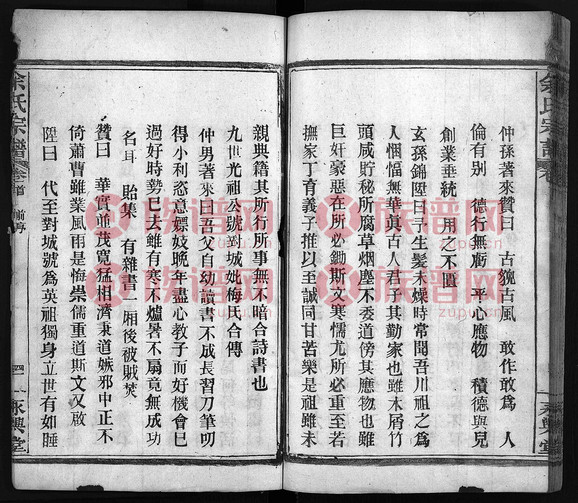 仲孫著來贊曰　古貌古風　敢作敢為　人
倫有別　德行無虧　平心應物　積德與兒
創業垂統　用永不匱
玄孫錦陞曰予生髮未燥時常聞吾川祖之為
人悃愊無華真古人君子其勤家也雖木屑竹
頭咸貯秘所腐草烟塵不委道傍其應物也雖
巨奸豪惡在所必鋤斯文寒懦尤所必重至若
撫家丁育義子推以至誠同甘苦樂是祖雖未
親典籍其所行所事無不暗合詩書也
九世光祖公號對城妣梅氏合傳
仲男著來曰吾父自幼讀書不成長習刀筆叨
得小利恣意嫖妓晚年盡心教子而好機會已
過好時勢已去雖有寒不爐暑不扇竟無成功
名耳　貽集　有雜書一厢後被賊焚
贊曰　華實並茂寬猛相濟秉道嫉邪中正不
倚蕭曹雖業風雨是悔崇儒重道斯文又啟
陞曰　代至對城號為英祖獨身立世有如睡
余氏宗譜
卷首
永興堂
余氏宗譜
卷
永興堂
族谱网
zupu.cn